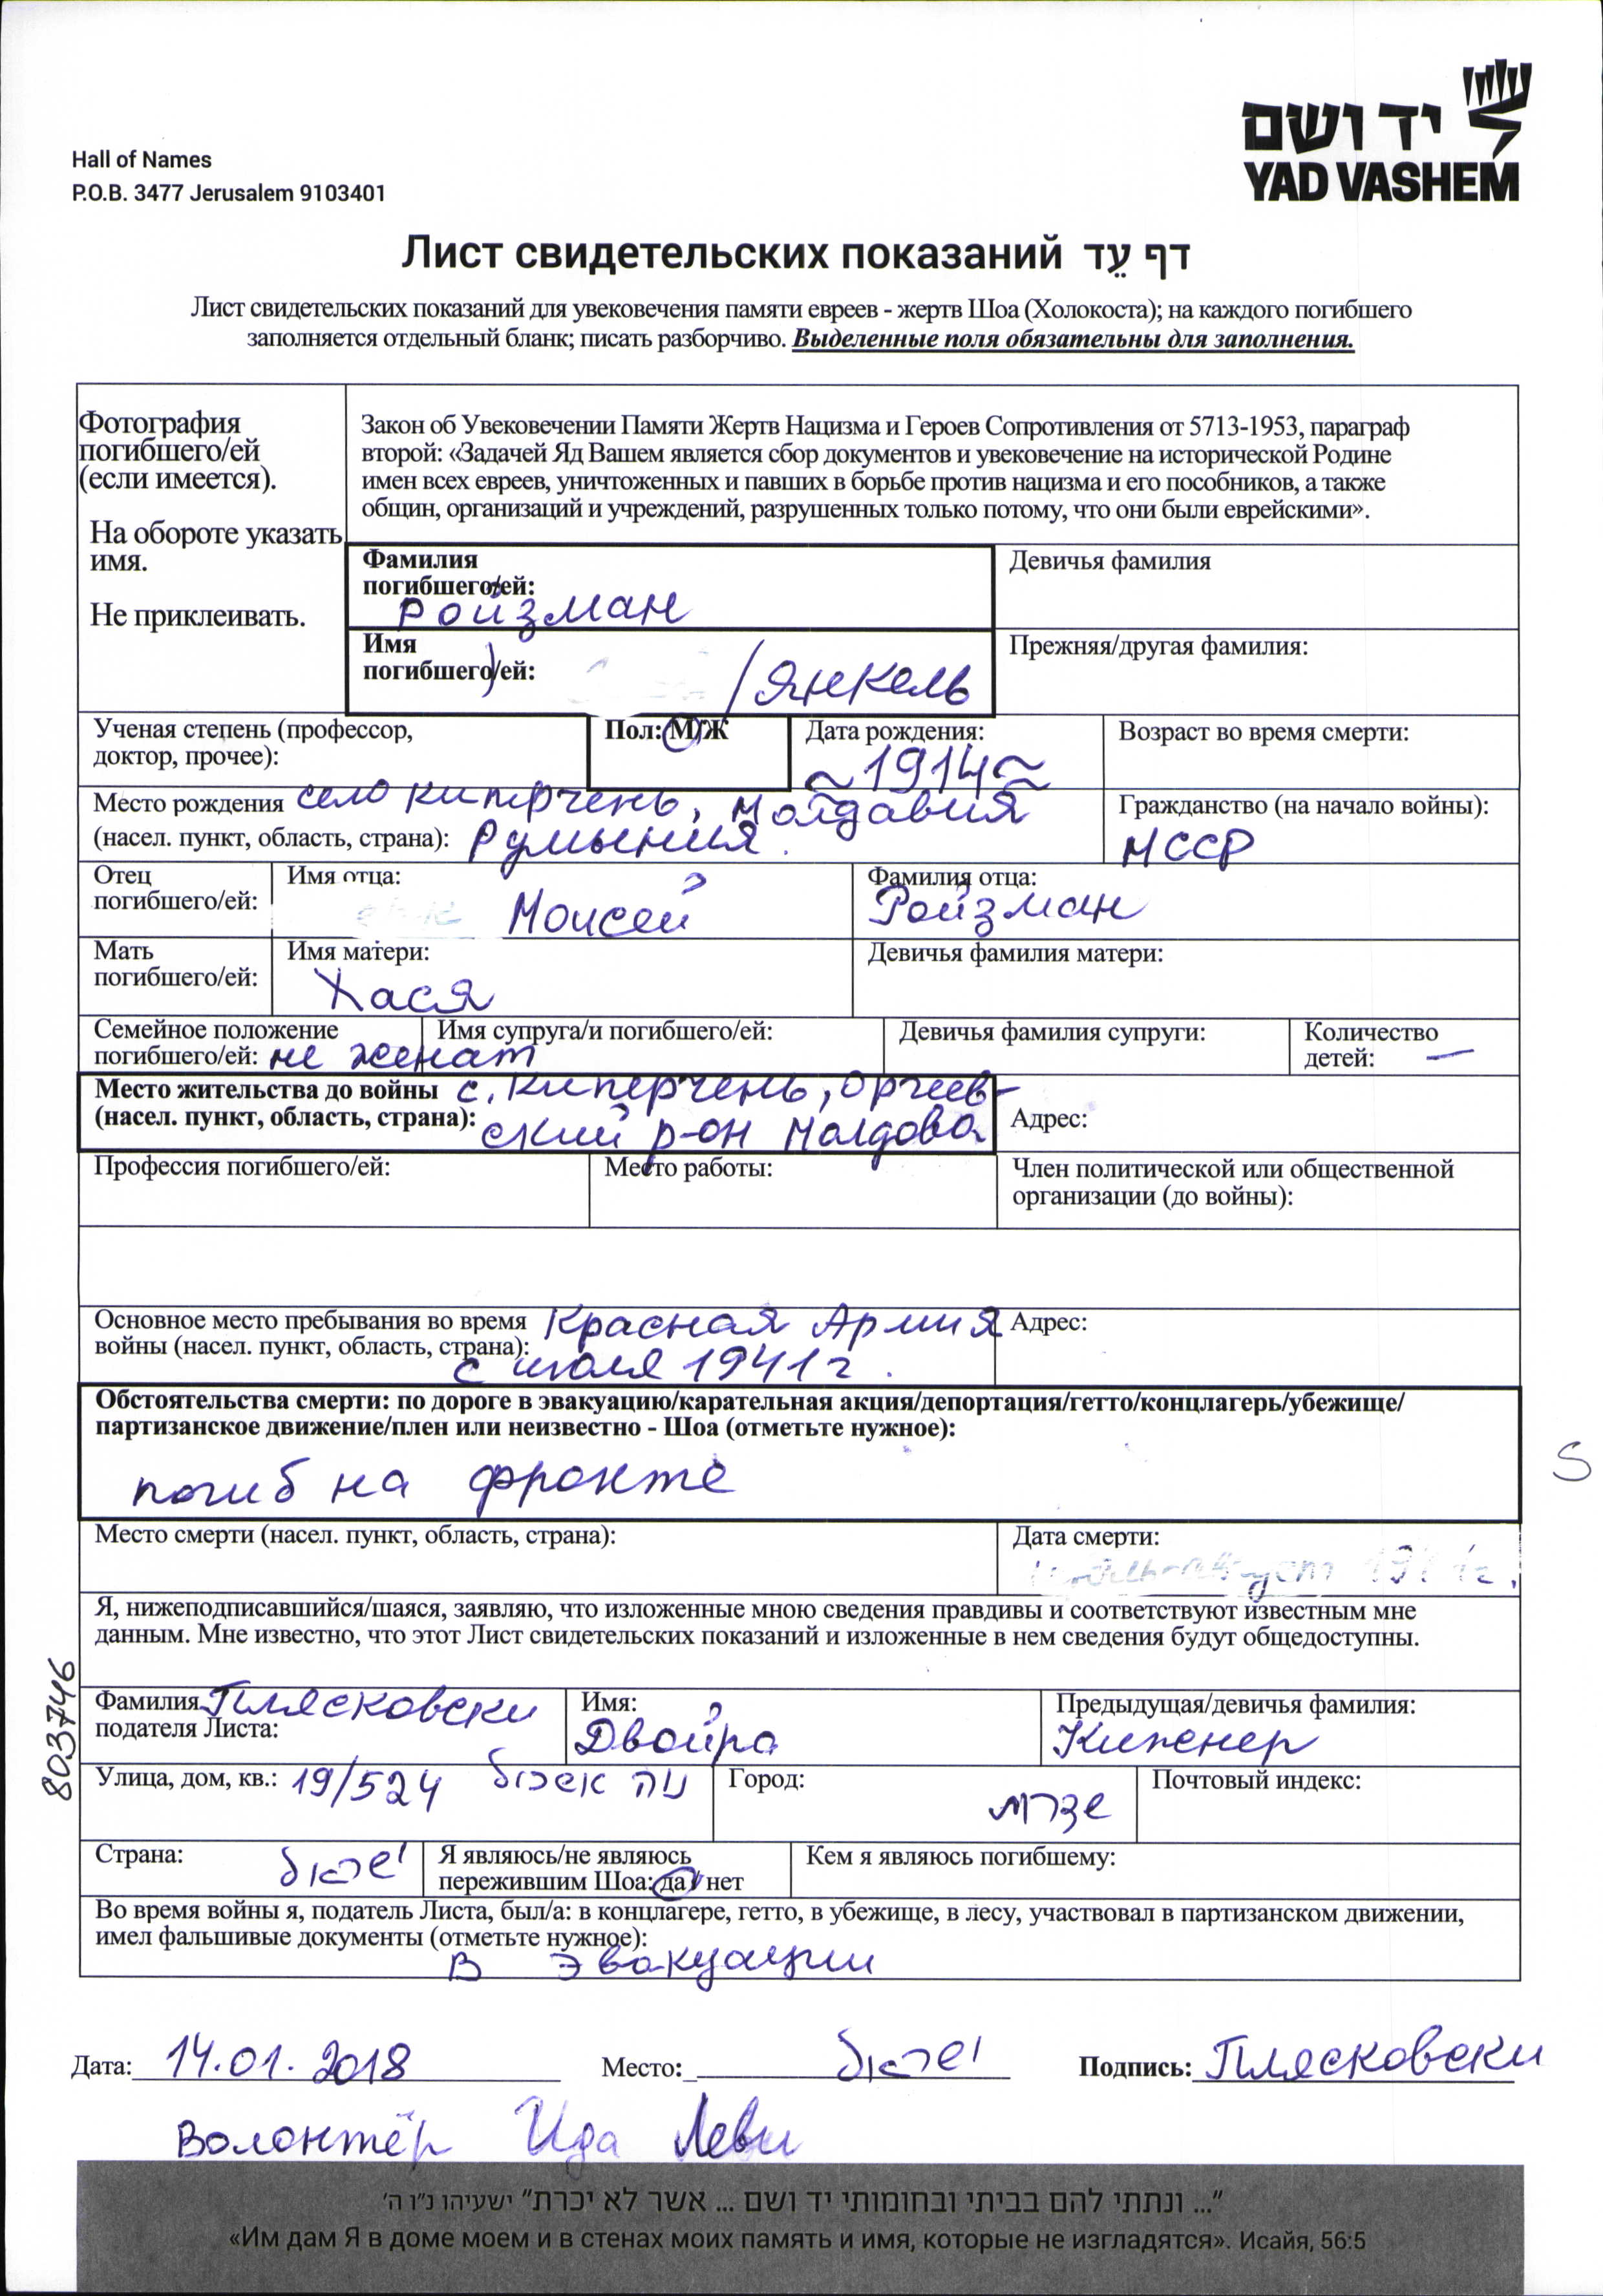 יד ושם
YAD VASHEM
Hall of Names
P.O.B. 3477 Jerusalem 9103401
Лист свидетельских показаний דף עֵד
Лист свидетельских показаний для увековечения памяти евреев - жертв Шоа (Холокоста); на каждого погибшего
заполняется отдельный бланк; писать разборчиво. Выделенные поля обязательны для заполнения.
Фотография
погибшего/ей
(если имеется).
На обороте указать
имя.
Не приклеивать.
Закон об Увековечении Памяти Жертв Нацизма и Героев Сопротивления от 5713-1953, параграф
второй: «Задачей Яд Вашем является сбор документов и увековечение на исторической Родине
имен всех евреев, уничтоженных и павших в борьбе против нацизма и его пособников, а также
общин, организаций и учреждений, разрушенных только потому, что они были еврейскими».
Фамилия
погибшего/ей:
Ройзман
Девичья фамилия
Имя
погибшего/ей:
/Янкель
Прежняя/другая фамилия:
Ученая степень (профессор,
доктор, прочее):
Пол: М/Ж
Дата рождения:
~1914~
Возраст во время смерти:
Место рождения село Киперчень, Молдавия
(насел. пункт, область, страна): Румыния.
Гражданство (на начало войны):
МССР
Отец
погибшего/ей:
Имя отца:
Моисей
Фамилия отца:
Ройзман
Мать
погибшего/ей:
Имя матери:
Хася
Девичья фамилия матери:
Семейное положение
погибшего/ей: не женат
Имя супруга/и погибшего/ей:
Девичья фамилия супруги:
Количество
детей: —
Место жительства до войны с. Киперчень, Оргеев-
(насел. пункт, область, страна): ский р-он Молдова
Адрес:
Профессия погибшего/ей:
Место работы:
Член политической или общественной
организации (до войны):
Основное место пребывания во время Красная Армия
войны (насел. пункт, область, страна): с июля 1941г.
Адрес:
Обстоятельства смерти: по дороге в эвакуацию/карательная акция/депортация/гетто/концлагерь/убежище/
партизанское движение/плен или неизвестно - Шоа (отметьте нужное):
погиб на фронте
S
Место смерти (насел. пункт, область, страна):
Дата смерти:
Я, нижеподписавшийся/шаяся, заявляю, что изложенные мною сведения правдивы и соответствуют известным мне
данным. Мне известно, что этот Лист свидетельских показаний и изложенные в нем сведения будут общедоступны.
803746
Фамилия Плясковски
подателя Листа:
Имя:
Двойра
Предыдущая/девичья фамилия:
Киженер
Улица, дом, кв.: 19/524
Город:
Почтовый индекс:
Страна: ישראל
Я являюсь/не являюсь
пережившим Шоа: да/ нет
Кем я являюсь погибшему:
Во время войны я, податель Листа, был/а: в концлагере, гетто, в убежище, в лесу, участвовал в партизанском движении,
имел фальшивые документы (отметьте нужное):
в эвакуации
Дата: 14.01.2018 Место: ישראל Подпись: Плясковски
Волонтёр Ида Леви
"... ונתתי להם בביתי ובחומותי יד ושם ... אשר לא יכרת" ישעיהו נ"ו ה'
«Им дам Я в доме моем и в стенах моих память и имя, которые не изгладятся». Исайя, 56:5